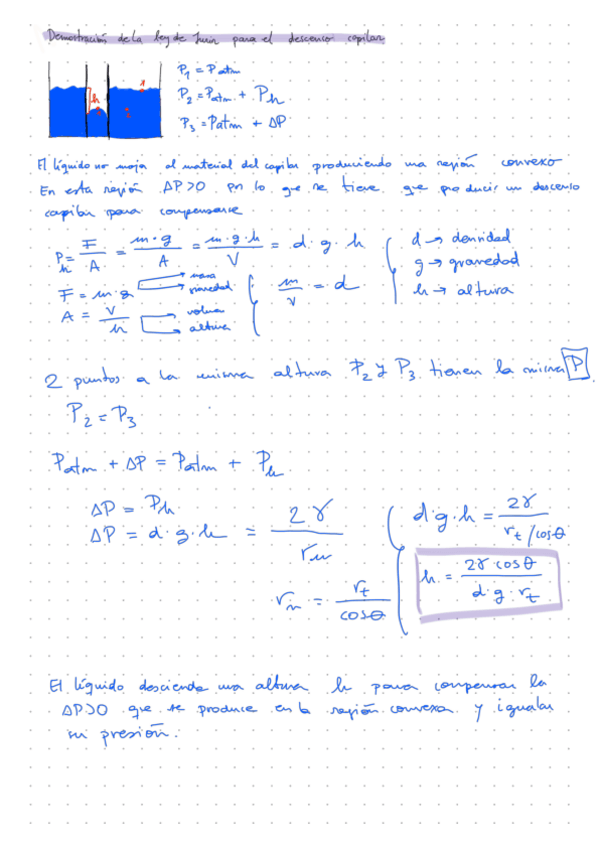 Demostración de la ley de Jurin para el descenso capilar
1
h
3
2
P₁ = Patm
P₂ = Patm + Ph
P₃ = Patm + ΔP
El líquido no moja al material del capilar produciendo una región convexo
En esta región ΔP>0 por lo que se tiene que producir un descenso
capilar para compensarse
Ph = F/A = m·g/A = m·g·h/V = d·g·h
F = m·g → masa → gravedad
A = V/h → volumen → altura
m/V = d
d → densidad
g → gravedad
h → altura
2 puntos a la misma altura P₂ y P₃ tienen la misma P
P₂ = P₃
Patm + ΔP = Patm + Ph
ΔP = Ph
ΔP = d·g·h = 2γ/rm
rm = rt/cosθ
d·g·h = 2γ/rt/cosθ
h = 2γ cosθ/d·g·rt
El líquido desciende una altura h para compensar la
ΔP>0 que se produce en la región convexa y igualar
su presión.